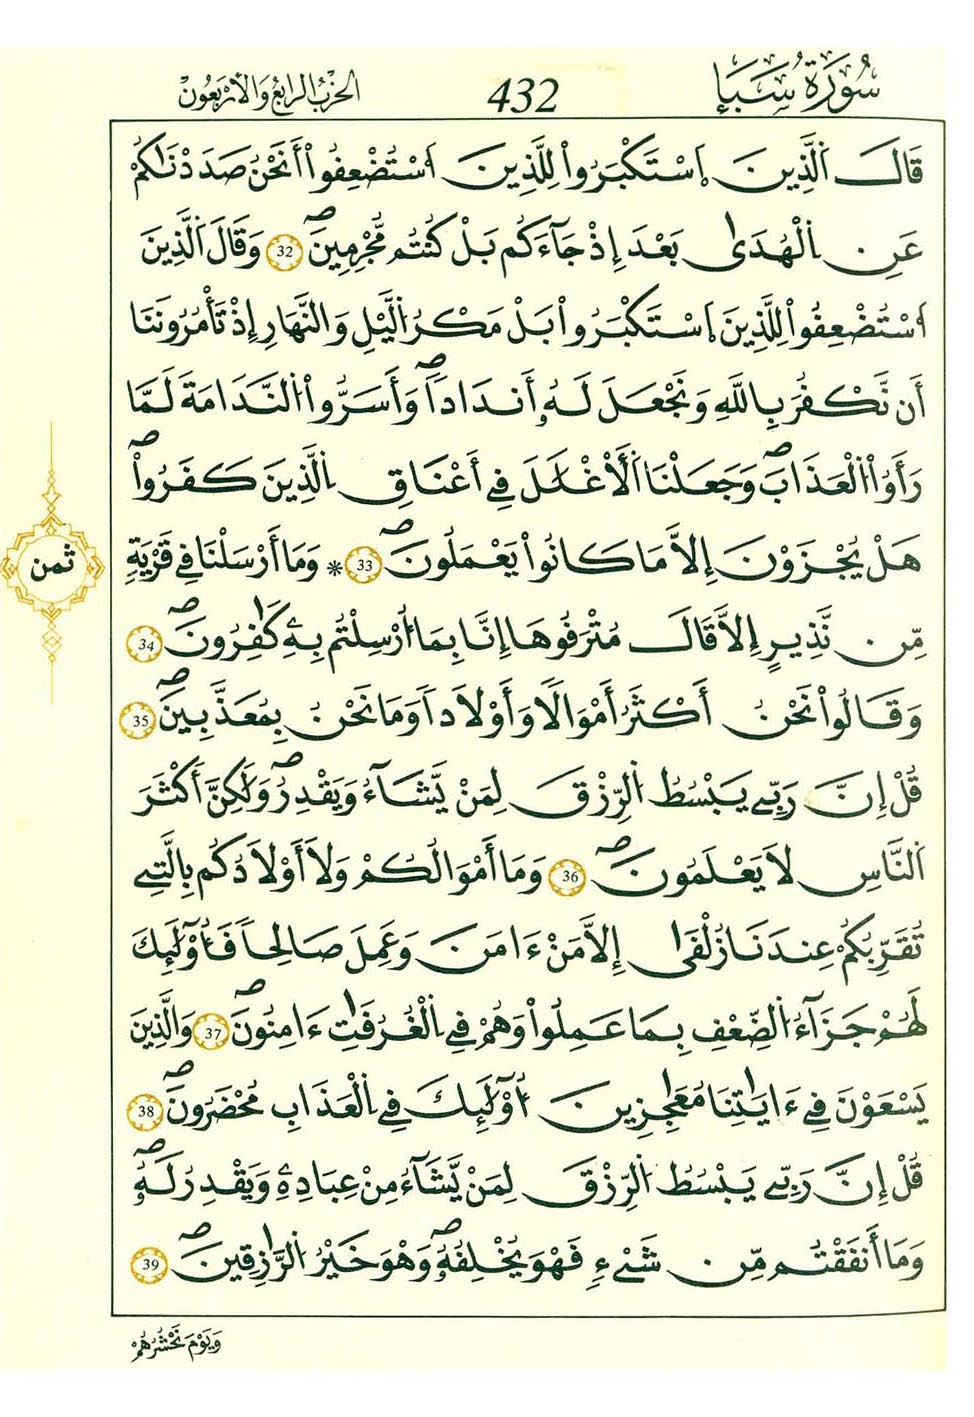 سُورَةُ سَبَإٍ
432
الحزب الرابع والأربعون
قَالَ اَلذِينَ اَسْتَكْبَرُواْ لِلذِينَ اَسْتُضْعِفُواْ أَنَحْنُ صَدَدْنَٰكُمْ
عَنِ اِلْهُدَىٰ بَعْدَ إِذْ جَآءَكُم بَلْ كُنتُم مُّجْرِمِينَۖ 32 وَقَالَ اَلذِينَ
اَسْتُضْعِفُواْ لِلذِينَ اَسْتَكْبَرُواْ بَلْ مَكْرُ اُليْلِ وَالنَّهَارِ إِذْ تَأْمُرُونَنَا
أَن نَّكْفُرَ بِاللَّهِ وَنَجْعَلَ لَهُۥ أَندَاداٗۖ وَأَسَرُّواْ اُلنَّدَامَةَ لَمَّا
رَأَوُاْ اُلْعَذَابَۖ وَجَعَلْنَا اَلْأَغْلَٰلَ فِے أَعْنَاقِ اِلذِينَ كَفَرُواْۖ
هَلْ يُجْزَوْنَ إِلَّا مَا كَانُواْ يَعْمَلُونَۖ 33 * وَمَا أَرْسَلْنَا فِے قَرْيَةٖ
مِّن نَّذِيرٍ إِلَّا قَالَ مُتْرَفُوهَا إِنَّا بِمَا أُرْسِلْتُم بِهِۦ كَٰفِرُونَۖ 34
وَقَالُواْ نَحْنُ أَكْثَرُ أَمْوَٰلاٗ وَأَوْلَٰداٗ وَمَا نَحْنُ بِمُعَذَّبِينَۖ 35
قُلْ إِنَّ رَبِّے يَبْسُطُ اُلرِّزْقَ لِمَنْ يَّشَآءُ وَيَقْدِرُۖ وَلَٰكِنَّ أَكْثَرَ
اَلنَّاسِ لَا يَعْلَمُونَۖ 36 وَمَا أَمْوَٰلُكُمْ وَلَا أَوْلَٰدُكُم بِالتِے
تُقَرِّبُكُمْ عِندَنَا زُلْفَىٰ إِلَّا مَنْ ءَامَنَ وَعَمِلَ صَٰلِحاٗ فَأُوْلَٰٓئِكَ
لَهُمْ جَزَآءُ اُلضِّعْفِ بِمَا عَمِلُواْ وَهُمْ فِے اِلْغُرُفَٰتِ ءَامِنُونَۖ 37 وَالذِينَ
يَسْعَوْنَ فِے ءَايَٰتِنَا مُعَٰجِزِينَ أُوْلَٰٓئِكَ فِے اِلْعَذَابِ مُحْضَرُونَۖ 38
قُلْ إِنَّ رَبِّے يَبْسُطُ اُلرِّزْقَ لِمَنْ يَّشَآءُ مِنْ عِبَادِهِۦ وَيَقْدِرُ لَهُۥۖ
وَمَا أَنفَقْتُم مِّن شَےْءٖ فَهْوَ يُخْلِفُهُۥۖ وَهْوَ خَيْرُ اُلرَّٰزِقِينَۖ 39
ثمن
وَيَوْمَ نَحْشُرُهُمْ